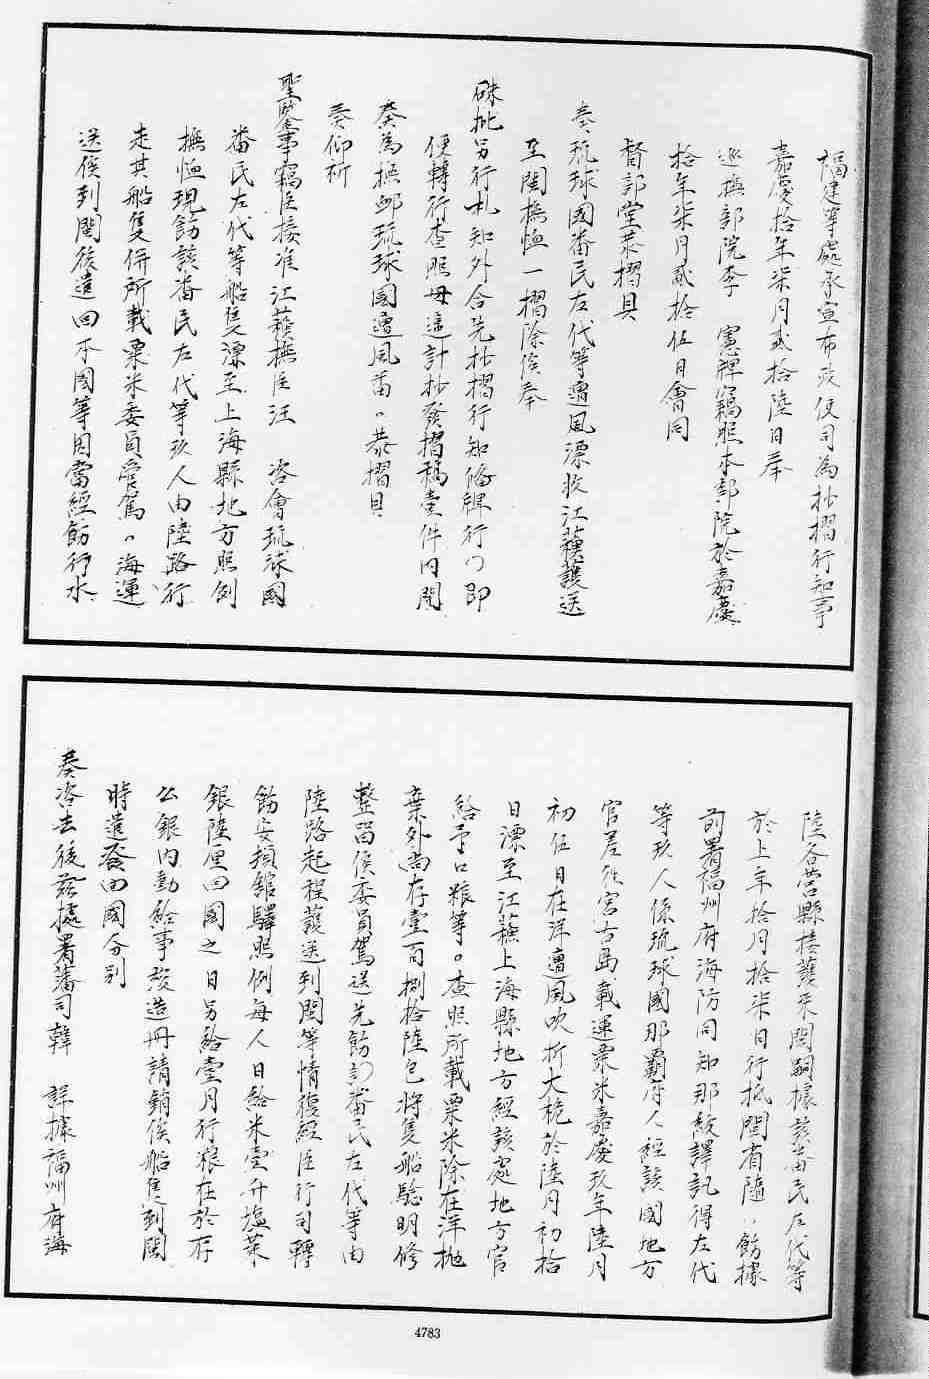 福建等處承宣布政使司為抄摺行知事
嘉慶拾年柒月貳拾陸日奉
巡撫部院李 憲牌竊照本部院於嘉慶
拾年柒月貳拾伍日會同
督部堂恭摺具
奏琉球國番民左代等遭風漂收江蘓護送
至閩撫恤一摺除俟奉
硃批另行札知外合先抄摺行知俻牌行司即
便轉行查照毋違計抄發摺稿壹件內開
奏為撫卹琉球國遭風番〻恭摺具
奏仰祈
聖鑒事竊臣接准江蘓撫臣汪 咨會琉球國
番民左代等船隻漂至上海縣地方照例
撫恤現飭該番民左代等玖人由陸路行
走其船隻併所載粟米委員管駕〻海運
送俟到閩後遣回本國等因當經飭行水
陸各營縣接護來閩嗣據該番民左代等
於上年拾月拾柒日行抵閩省隨〻飭據
前署福州府海防同知那紱譯訊得左代
等玖人係琉球國那霸府人經該國地方
官差往宮古島載運粟米嘉慶玖年陸月
初伍日在洋遭風吹折大桅於陸月初拾
日漂至江蘓上海縣地方經該處地方官
給予口粮等〻查照所載粟米除在洋拋
棄外尚存壹百捌拾陸包將隻船驗明修
整留俟委員駕送先飭
番民左代等由
陸路起程護送到閩等情復經臣行司轉
飭安頓館驛照例每人日給米壹升塩菜
銀陸厘回國之日另給壹月行粮在於存
公銀內動給事竣造冊請銷俟船隻到閩
時遣發回國分別
奏咨去後茲據署藩司韓 詳據福州府海
4783